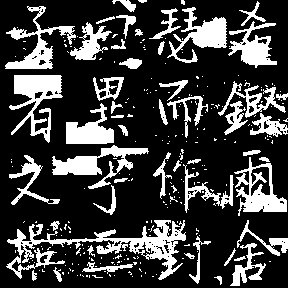 希鏗爾舍
瑟而作對
曰異乎三
子者之撰